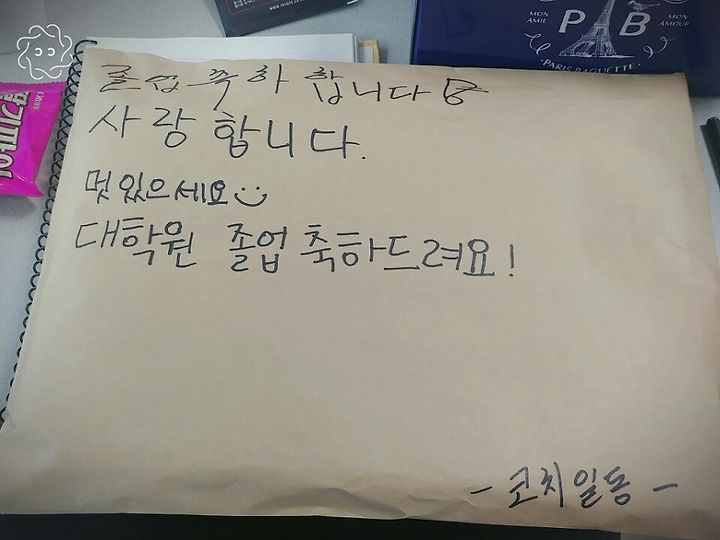 MON AMIE
P B
MON AMOUR
PARIS BAGUETTE
졸업 축하 합니다
사랑 합니다.
멋있으세요
대학원 졸업 축하드려요!
- 코치일동 -